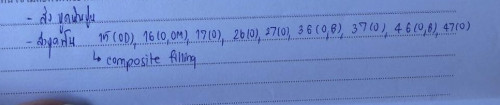 - ส่ง ขูดหินปูน
- อุดฟัน 15(OD), 16(O,OM), 17(O), 26(O), 27(O), 36(O,B), 37(O), 46(O,B), 47(O)
↳ composite filling